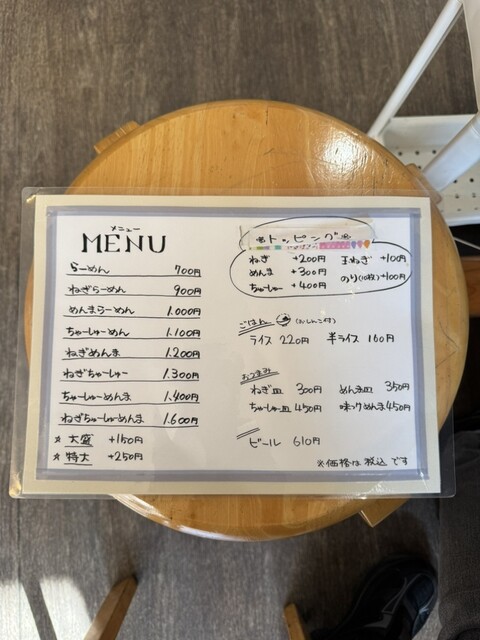 メニュー
MENU
らーめん 700円
ねぎらーめん 900円
めんまらーめん 1.000円
ちゃーしゅーめん 1.100円
ねぎめんま 1.200円
ねぎちゃーしゅー 1.300円
ちゃーしゅーめんま 1.400円
ねぎちゃーしゅーめんま 1.600円
☆ 大盛 +150円
☆ 特大 +250円
トッピング
ねぎ +200円 玉ねぎ +100円
めんま +300円 のり(10枚) +100円
ちゃーしゅー +400円
ごはん (おしんこ付)
ライス 220円 半ライス 160円
おつまみ
ねぎ皿 300円 めんま皿 350円
ちゃーしゅー皿 450円 味つけめんま 450円
ビール 610円
※価格は税込です